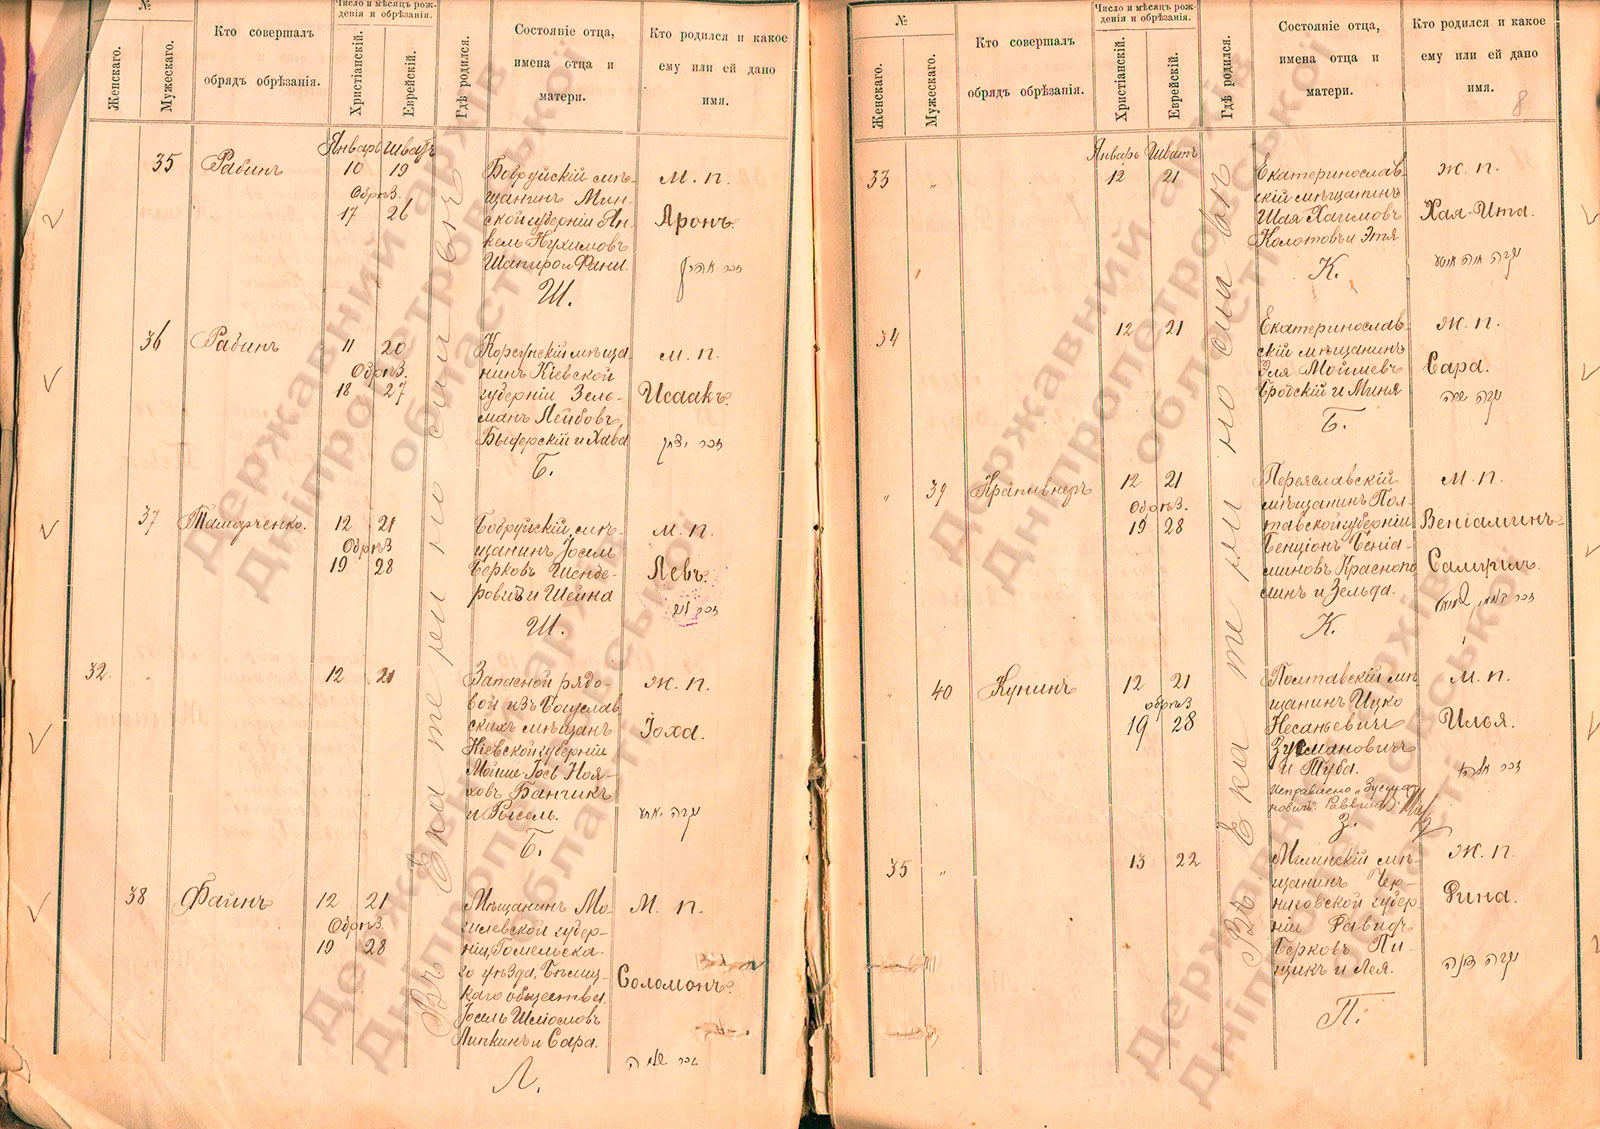 №
Женскаго.
Мужескаго.
Кто совершалъ
обрядъ обрѣзанія.
Число и мѣсяцъ рож-
денія и обрѣзанія.
Христіанскій.
Еврейскій.
Гдѣ родился.
Состояніе отца,
имена отца и
матери.
Кто родился и какое
ему или ей дано
имя.
Январь Шватъ
35 Рабинъ 10 19
Обрѣз.
17 26
Бобруйскій мѣ-
щанинъ Мин-
ской губерніи Ян-
кель Нухимовъ
Шапиро и Фани.
Ш.
М. п.
Аронъ.
זכר אהרן
36 Рабинъ 11 20
Обрѣз.
18 27
Корсунскій мѣща-
нинъ Кіевской
губерніи Зель-
манъ Лейбовъ
Быферскій и Хава
Б.
М. п.
Исаакъ.
זכר יצחק
37 Тамарченко. 12 21
Обрѣз
19 28
Бобруйскій мѣ-
щанинъ Іосель
Берковъ Шенде-
ровичъ и Шейна
Ш.
М. п.
Левъ.
זכר
32. 12 21
Запасной рядо-
вой изъ Богуслав
скихъ мѣщанъ
Кіевской губерніи
Мойше Іось Ноя-
ховъ Банчикъ
и Рысель.
Б.
Ж. п.
Іоха.
נקבה
38 Файнъ 12 21
Обрѣз.
19 28
Мѣщанинъ Мо-
гилевской губер-
ніи, Гомельска-
го уѣзда, Бѣлиц-
каго общества,
Іосель Шліомовъ
Липкинъ и Сара.
Л.
М. п.
Соломонъ.
זכר שלמה
Въ Екатеринославѣ
№
Женскаго.
Мужескаго.
Кто совершалъ
обрядъ обрѣзанія.
Число и мѣсяцъ рож-
денія и обрѣзанія.
Христіанскій.
Еврейскій.
Гдѣ родился.
Состояніе отца,
имена отца и
матери.
Кто родился и какое
ему или ей дано
имя.
8
Январь Шватъ
33 " 12 21
Екатеринослав-
скій мѣщанинъ
Шая Хаимовъ
Колотовъ и Этя
К.
Ж. п.
Хая-Ита.
נקבה חיה איטע
34 12 21
Екатеринослав-
скій мѣщанинъ
Эля Мойшевъ
Бродскій и Миня
Б.
Ж. п.
Сара.
נקבה שרה
" 39 Крапивнеръ 12 21
Обрѣз.
19 28
Переяславскій
мѣщанинъ Пол-
тавской губерніи
Бенціонъ Беніа-
миновъ Краснопо
линъ и Зельда.
К.
М. п.
Веніаминъ-
Самуилъ.
זכר בנימין שמואל
" 40 Кунинъ 12 21
обрѣз
19 28
Полтавскій мѣ-
щанинъ Ицко
Зусмановичъ
и Туба.
Исправлено "Зусма-
новичъ". Раввинъ
З.
М. п.
Илья.
זכר אליהו
35 " 13 22
Мглинскій мѣ-
щанинъ Чер-
ниговской губер-
ніи Равидъ
Берковъ Пи-
щикъ и Лея.
П.
Ж. п.
Дина.
נקבה דינה
Въ Екатеринославѣ
Державний архів
Дніпропетровської
області